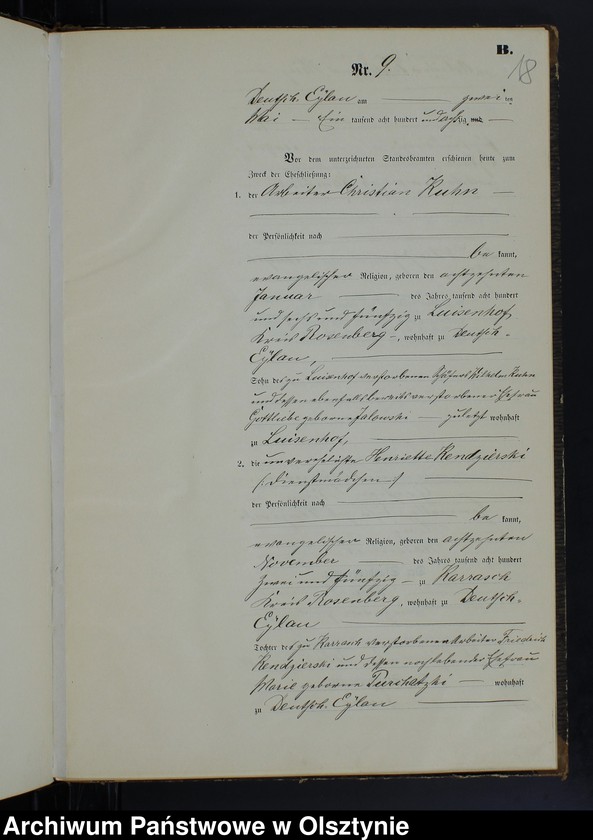 B.
18
Nr. 9.
Deutsch Eylau am zwei ten
Mai Ein tausend acht hundert und achtzig
Vor dem unterzeichneten Standesbeamten erschienen heute zum
Zweck der Eheschließung:
1. der Arbeiter Christian Kuhn
der Persönlichkeit nach
be kannt,
evangelischer Religion, geboren den achtzehnten
Januar des Jahres tausend acht hundert
und sechs und fünfzig zu Luisenhof,
Kreis Rosenberg, wohnhaft zu Deutsch-
Eylau,
Sohn des zu Luisenhof verstorbenen Kuhn
und dessen ebenfalls bereits verstorbener Ehefrau
Gottliebe geborne Jalowski zuletzt wohnhaft
zu Luisenhof,
2. die unverehelichte Henriette Kendzierski
(: Dienstmädchen :)
der Persönlichkeit nach
be kannt,
evangelischer Religion, geboren den achtzehnten
November des Jahres tausend acht hundert
zwei und fünfzig zu Karrasch
Kreis Rosenberg, wohnhaft zu Deutsch-
Eylau
Tochter des zu Karrasch verstorbenen Arbeiter Friedrich
Kendzierski und dessen noch lebender Ehefrau
Marie geborne wohnhaft
zu Deutsch. Eylau
Archiwum Państwowe w Olsztynie